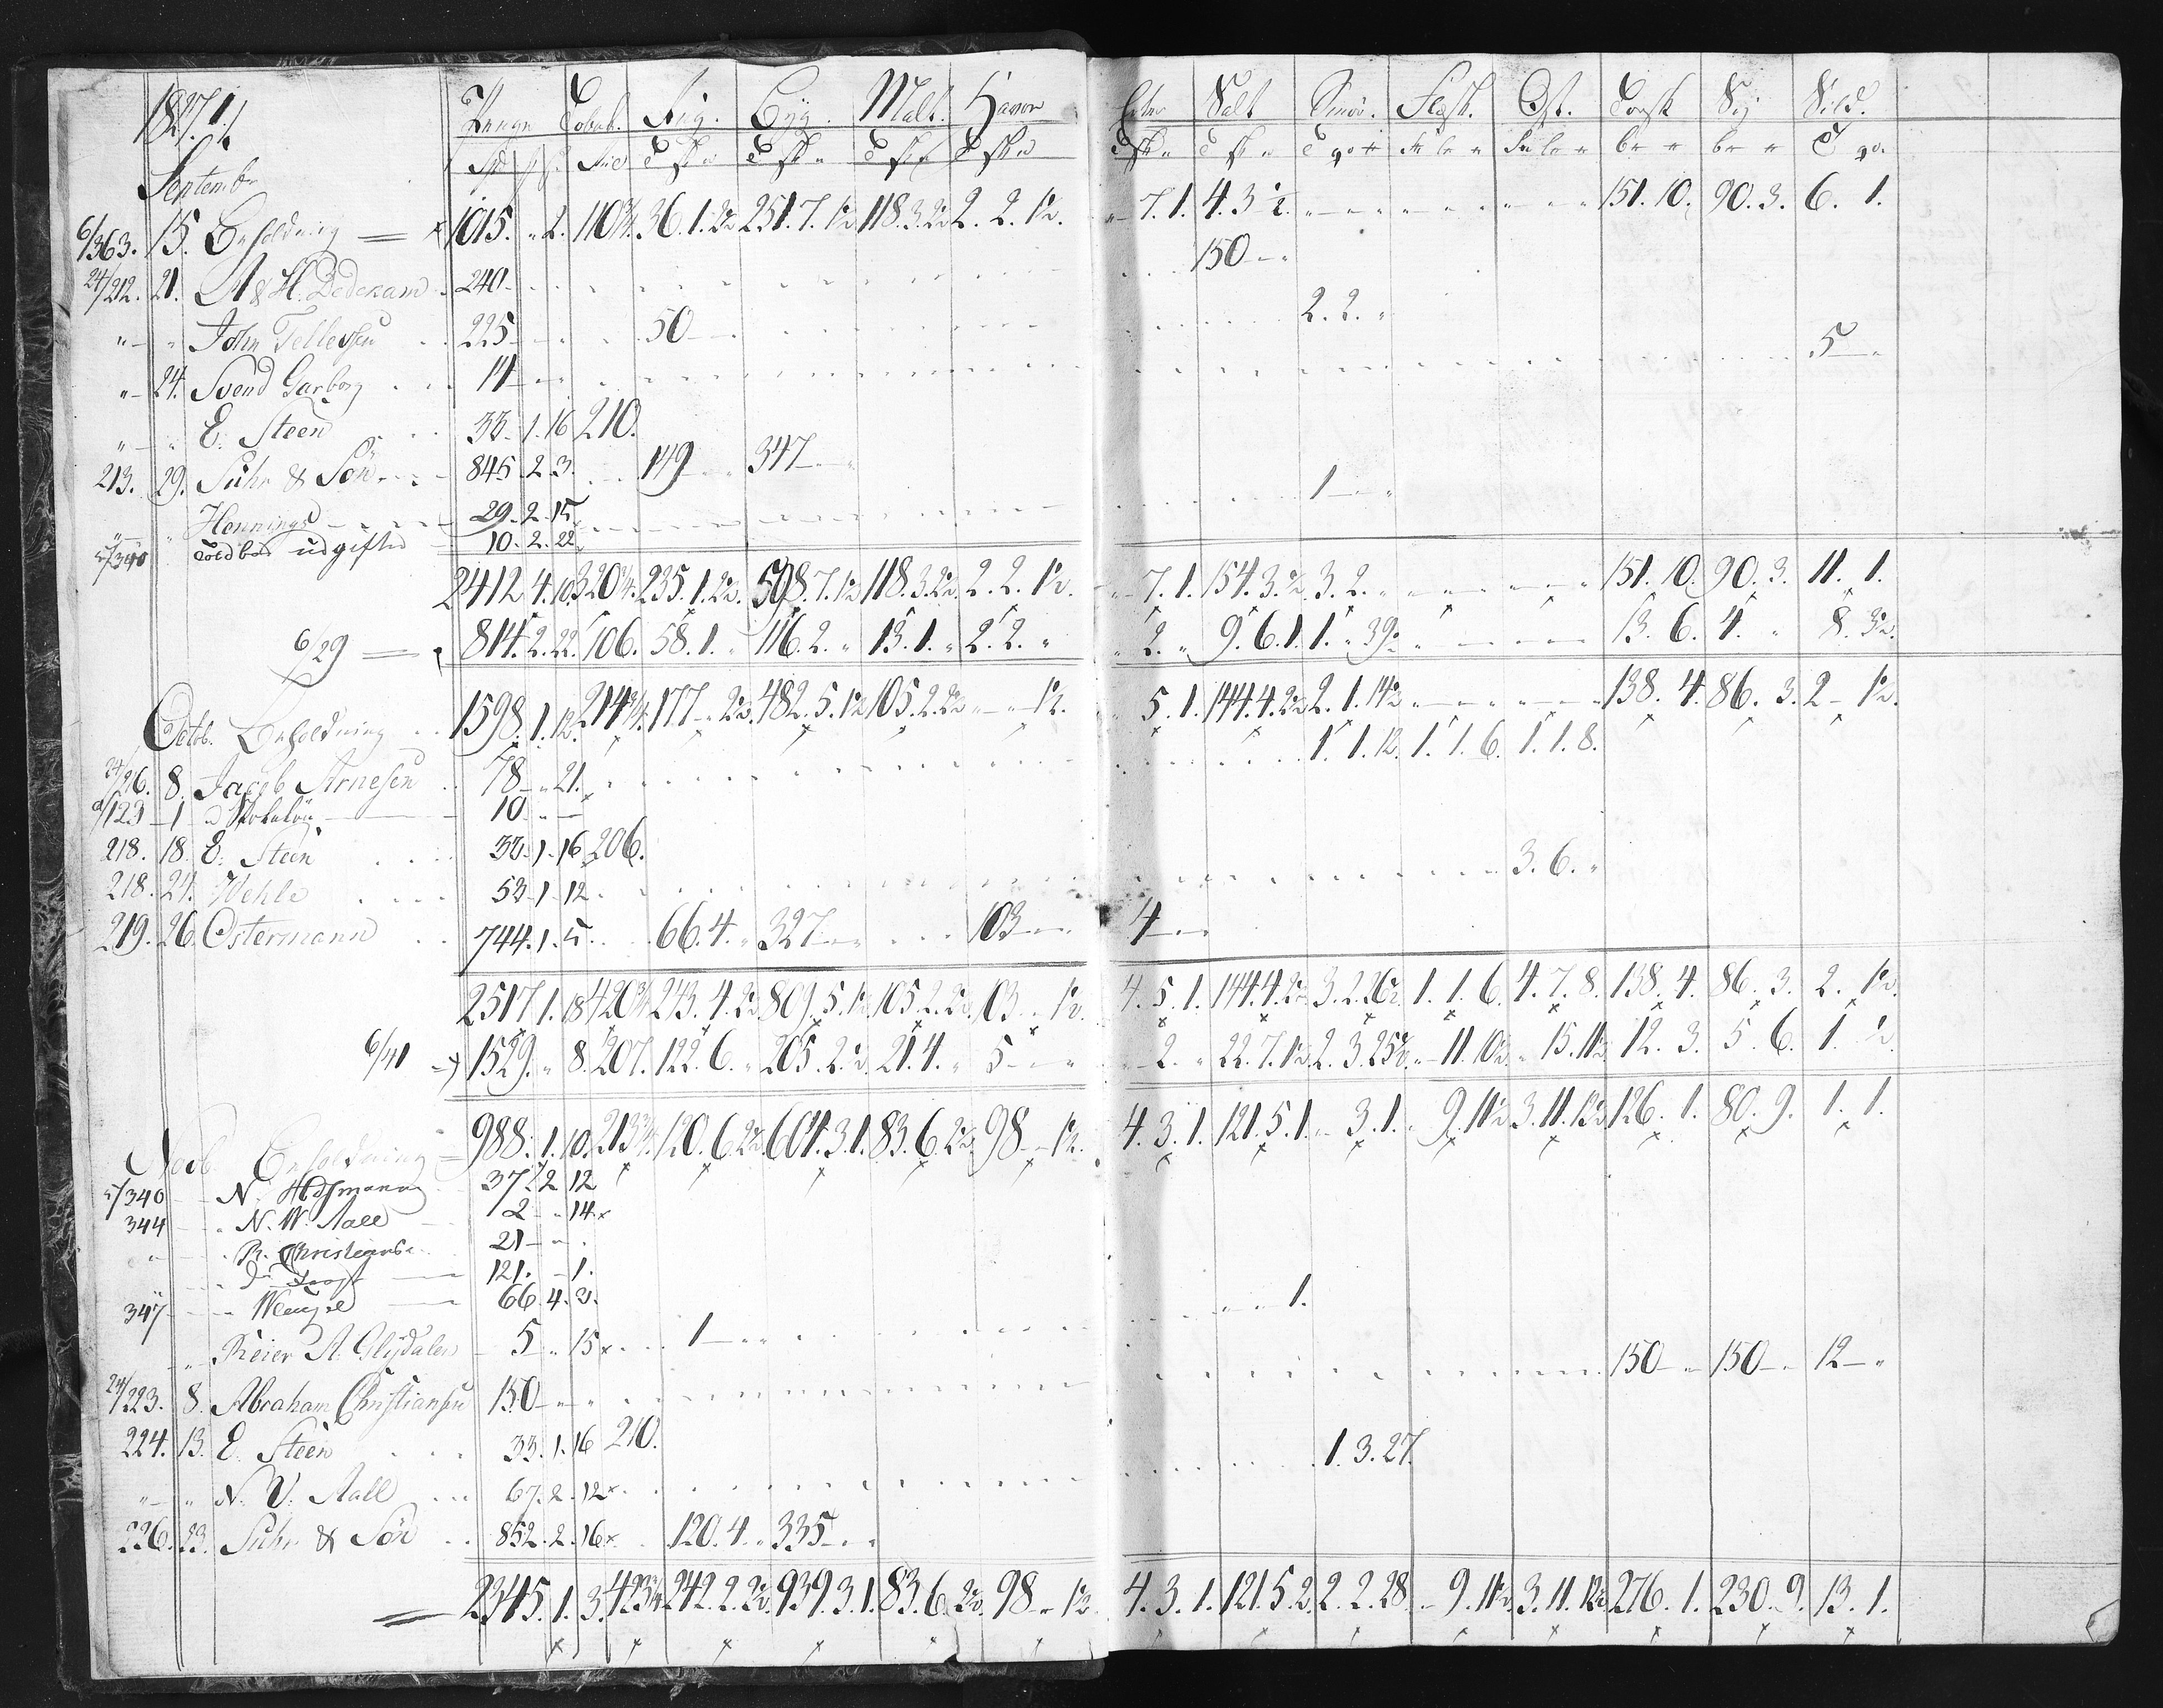 1827.
Penge Tobak. Rug. Byg. Malt. Havre Salt Smør. Flesk. Ost. Torsk Sej Sild.
Septembr
6/363. 15. Beholdning 1015. " 2. 110 3/4. 36. 1. 2/2 251. 7. 1/2 118. 3. 2/2 2. 2. 1/2. " 7. 1. 4. 3 1/2. 151. 10. 90. 3. 6. 1.
24/212. 21. A & H. Dedekam 240 150
" " John Tellefsen 225 50 2. 2. "
" 24. Svend Garborg 14 5
" " E. Steen 33. 1. 16 210.
213. 29. Suhr & Søn 845. 2. 3. 149 347 1
" " Hennings 29. 2. 15
5/340 Toldbod udgifter 10. 2. 22
2412 4. 10. 320 3/4. 235. 1. 2/2. 598. 7. 1/2 118. 3. 2/2. 2. 2. 1/2. 7. 1. 154. 3. 1/2. 3. 2. " 151. 10. 90. 3. 11. 1.
6/29 814. 2. 22. 106. 58. 1. " 116. 2. " 13. 1. " 2. 2. " 2. " 9. 6. 1. 1. " 39 13. 6. 4. " 8. 3/2.
Octob. Beholdning 1598. 1. 12. 214 3/4. 177 " 2/2. 482. 5. 1/2 105. 2. 2/2 " " 1/2. " 5. 1. 144. 4. 2/2 2. 1. 14 1/2 138. 4. 86. 3. 2 1/2.
24/26. 8. Jacob Arnesen 78 " 21. 1. 1. 12. 1. 1. 6. 1. 1. 8.
/123 1 10
218. 18. E. Steen 33. 1. 16 206.
218. 24. Wehle 53. 1. 12 3. 6. "
219. 26. Ostermann 744. 1. 5. 66. 4. " 327 103 4
2517 1. 18 420 3/4 243. 4. 2/2 809. 5. 1/2 105. 2. 2/2. 103 1/2. 4. 5. 1. 144. 4. 2/2 3. 2. 26 1/2 1. 1. 6. 4. 7. 8. 138. 4. 86. 3. 2. 1/2.
6/41 1529. " 8. 207. 122. 6. " 205. 2. 1/2. 21. 4. " 5 2. " 22. 7. 1/2. 2. 3. 25 1/2. " 11. 10 1/2. " 15. 11 1/2 12. 3. 5. 6. 1. 1/2.
Novb. Beholdning 988. 1. 10. 213 3/4. 120. 6. 2/2. 604. 3. 1. 83. 6. 2/2. 98 1/2. 4. 3. 1. 121. 5. 1. " 3. 1. " 9. 11 1/2 3. 11. 12 1/2 126. 1. 80. 9. 1. 1.
5/340 N. 37. 2 12
344 N. W. Aall 2 " 14
" R. Christians 21
121. 1.
347 Wengel 66. 4. 2. 1.
" Reier A. Glÿdalen 5 " 15 1
24/223. 8. Abraham Christiansen 150 150 150 12
224. 13. E. Steen 33. 1. 16 210. 1. 3. 27.
" " N. V. Aall 67. 2. 12
226. 23. Suhr & Søn 852. 2. 16 120. 4. " 335
2345. 1. 3. 423 3/4 242. 2. 2/2. 939. 3. 1. 83. 6. 2/2. 98 " 1/2. 4. 3. 1. 121. 5. 2. 2. 2. 28. " 9. 11 1/2. 3. 11. 12 1/2 276. 1. 230. 9. 13. 1.